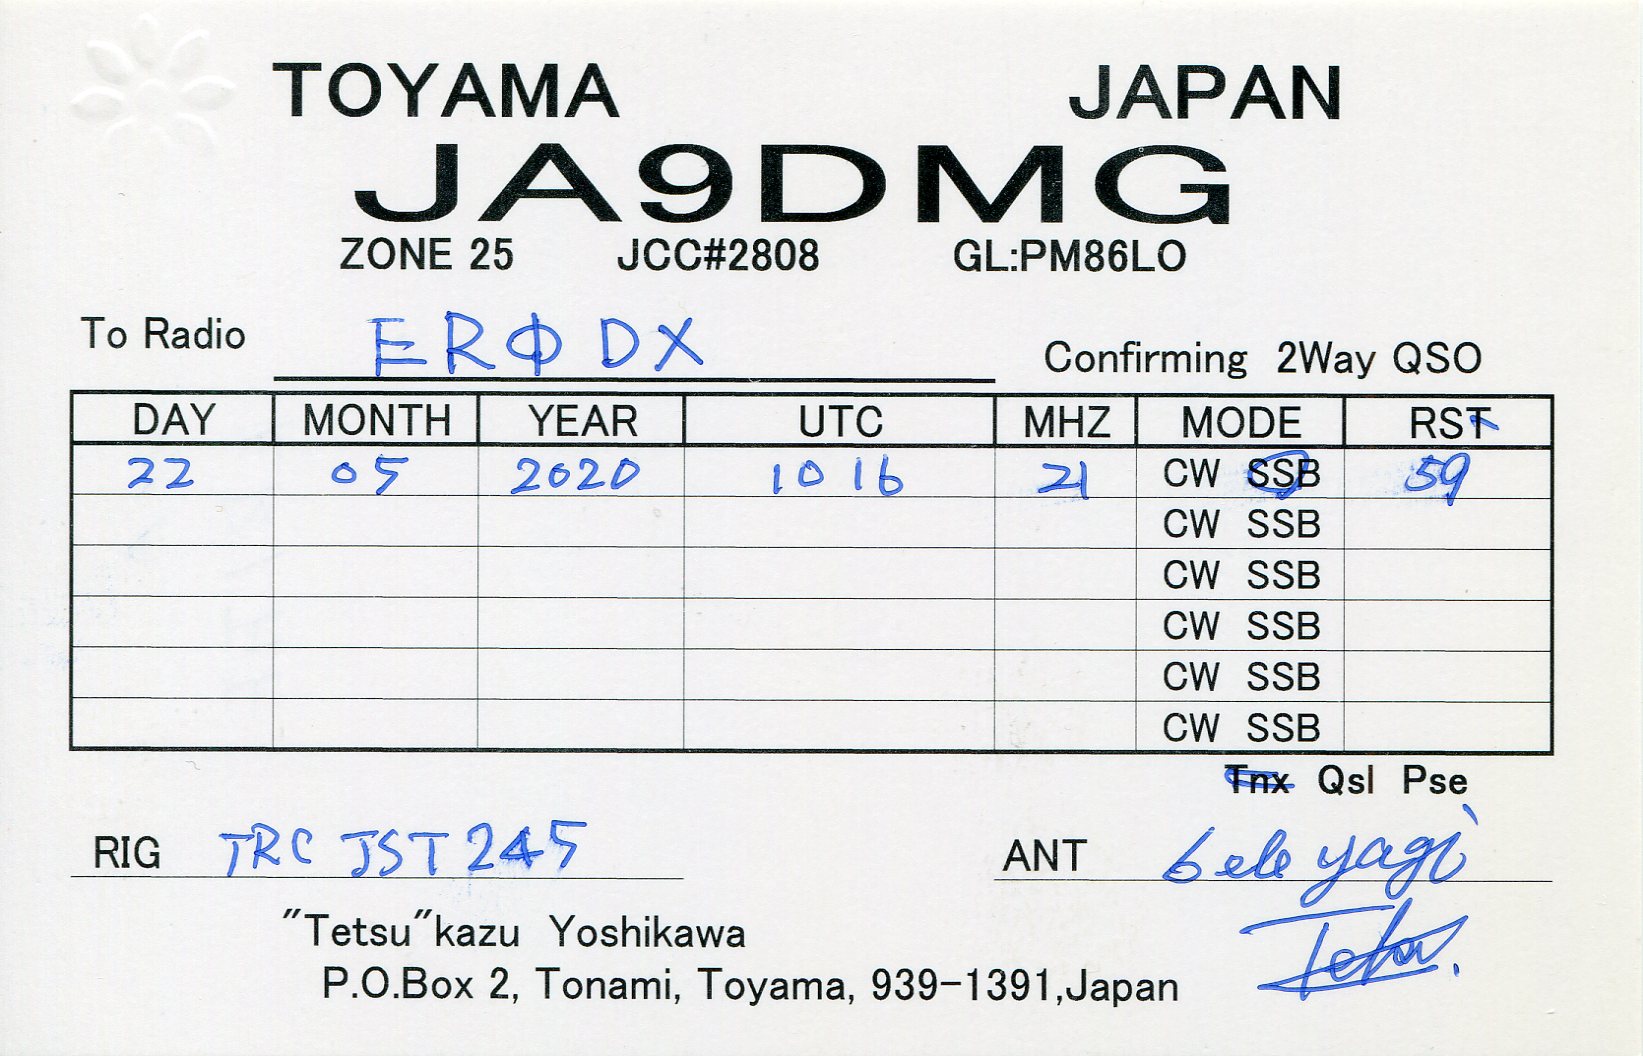 TOYAMA JAPAN
JA9DMG
ZONE 25 JCC#2808 GL:PM86LO
To Radio ERØDX Confirming 2Way QSO
DAY MONTH YEAR UTC MHZ MODE RST
22 05 2020 1016 21 CW SSB 59
CW SSB
CW SSB
CW SSB
CW SSB
CW SSB
Tnx Qsl Pse
RIG JRC JST245 ANT 6 ele yagi
"Tetsu"kazu Yoshikawa
P.O.Box 2, Tonami, Toyama, 939-1391,Japan